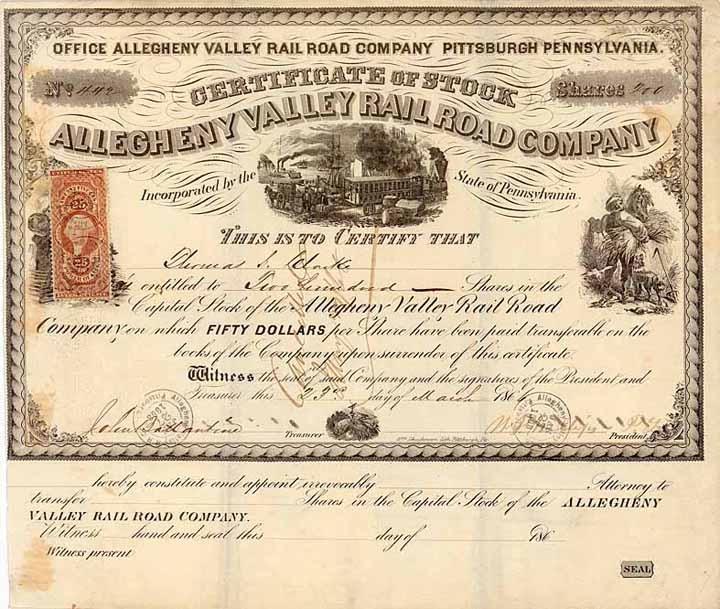 OFFICE ALLEGHENY VALLEY RAIL ROAD COMPANY PITTSBURGH PENNSYLVANIA.
No 442 Shares 200
CERTIFICATE OF STOCK
ALLEGHENY VALLEY RAIL ROAD COMPANY
Incorporated by the State of Pennsylvania.
25
25
THIS IS TO CERTIFY THAT
Thomas
is entitled to Two hundred Shares in the
Capital Stock of the Allegheny Valley Rail Road
Company on which FIFTY DOLLARS per Share have been paid transferable on the
books of the Company upon surrender of this certificate.
Witness the seal of said Company and the signatures of the President and
Treasurer this day of March 186
John Ballantine Treasurer President
hereby constitute and appoint irrevocably Attorney to
transfer Shares in the Capital Stock of the ALLEGHENY
VALLEY RAIL ROAD COMPANY.
Witness hand and seal this day of 186
Witness present
SEAL